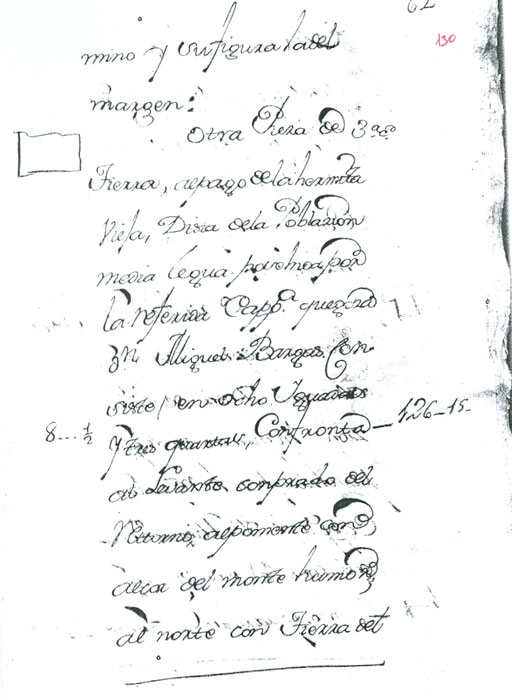 62
130
mino y su figura la del
margen:
Otra Pieza de
Tierra, al pago de la hermita
Vieja, Dista de la Población
media legua
la referida Capp.ª que goza
Dn. Miguel Bargas, Con-
siste en ocho Yguadas
8... 1/2 y tres quartas, Confronta 126-15-
al Levante, con prado del
al poniente con
del monte
al norte con Tierra del